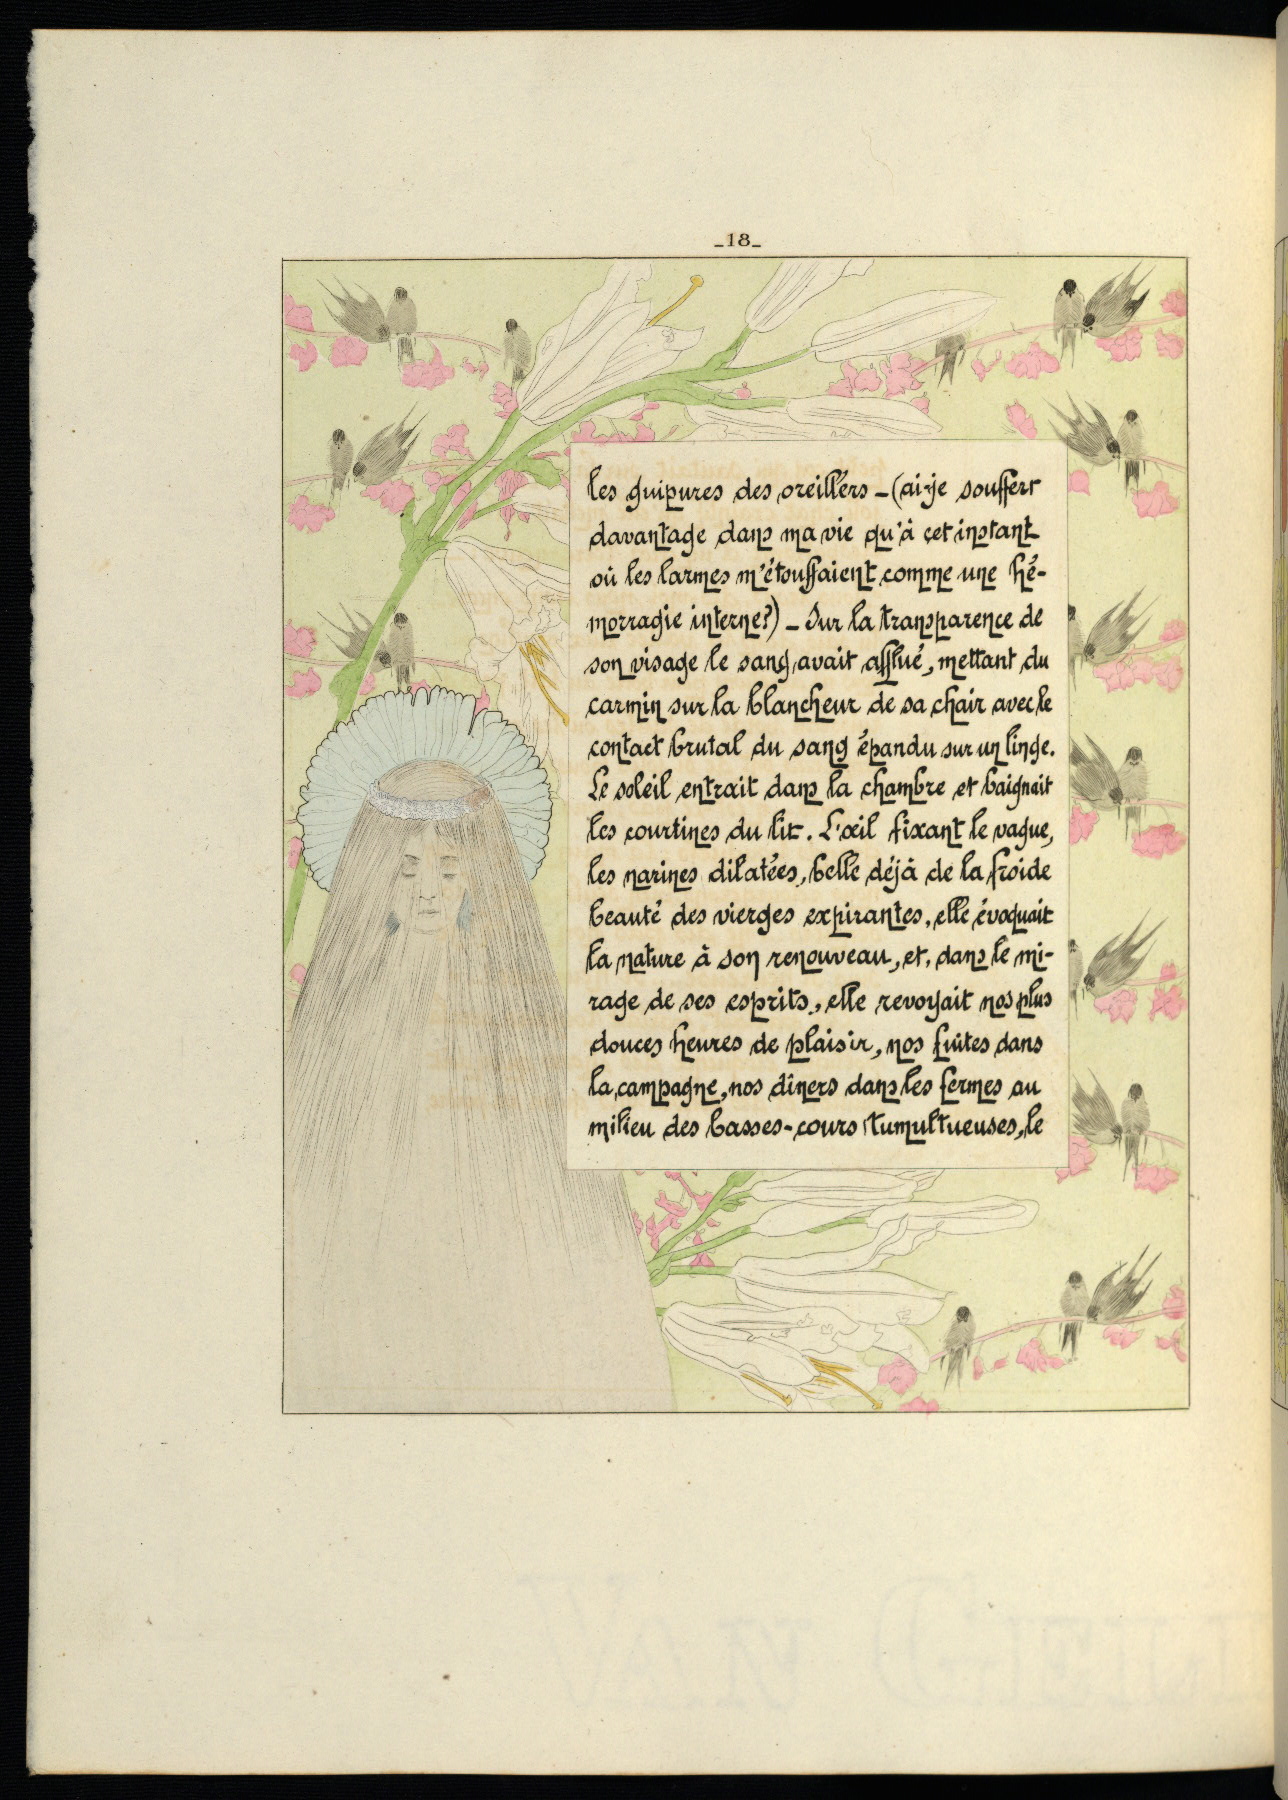 _18_
les guipures des oreillers _ (ai-je souffert
davantage dans ma vie qu'à cet instant
où les larmes m'étouffaient comme une hé-
morragie interne?) _ Sur la transparence de
son visage le sang avait afflué, mettant du
carmin sur la blancheur de sa chair avec le
contact brutal du sang épandu sur un linge.
Le soleil entrait dans la chambre et baignait
les courtines du lit. L'œil fixant le vague,
les narines dilatées, belle déjà de la froide
beauté des vierges expirantes, elle évoquait
la nature à son renouveau, et, dans le mi-
rage de ses esprits, elle revoyait nos plus
douces heures de plaisir, nos fuites dans
la campagne, nos dîners dans les fermes au
milieu des basses-cours tumultueuses, le